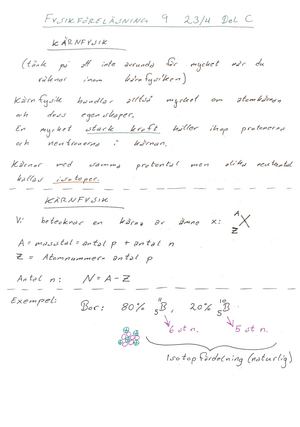 FYSIKFÖRELÄSNING 9 23/4 Del C
KÄRNFYSIK
(tänk på att inte avrunda för mycket när du
räknar inom kärnfysiken)
Kärnfysik handlar alltså mycket om atomkärnan
och dess egenskaper.
En mycket stark kraft håller ihop protonerna
och neutronerna i kärnan.
Kärnor med samma protontal men olika neutrontal
kallas isotoper.
KÄRNFYSIK
Vi betecknar en kärna av ämne X: A Z X
A = masstal = antal p + antal n
Z = Atomnummer = antal p
Antal n: N = A - Z
Exempel:
Bor: 80% 11 5 B, 20% 10 5 B
6 st n. 5 st n.
Isotopfördelning (naturlig)